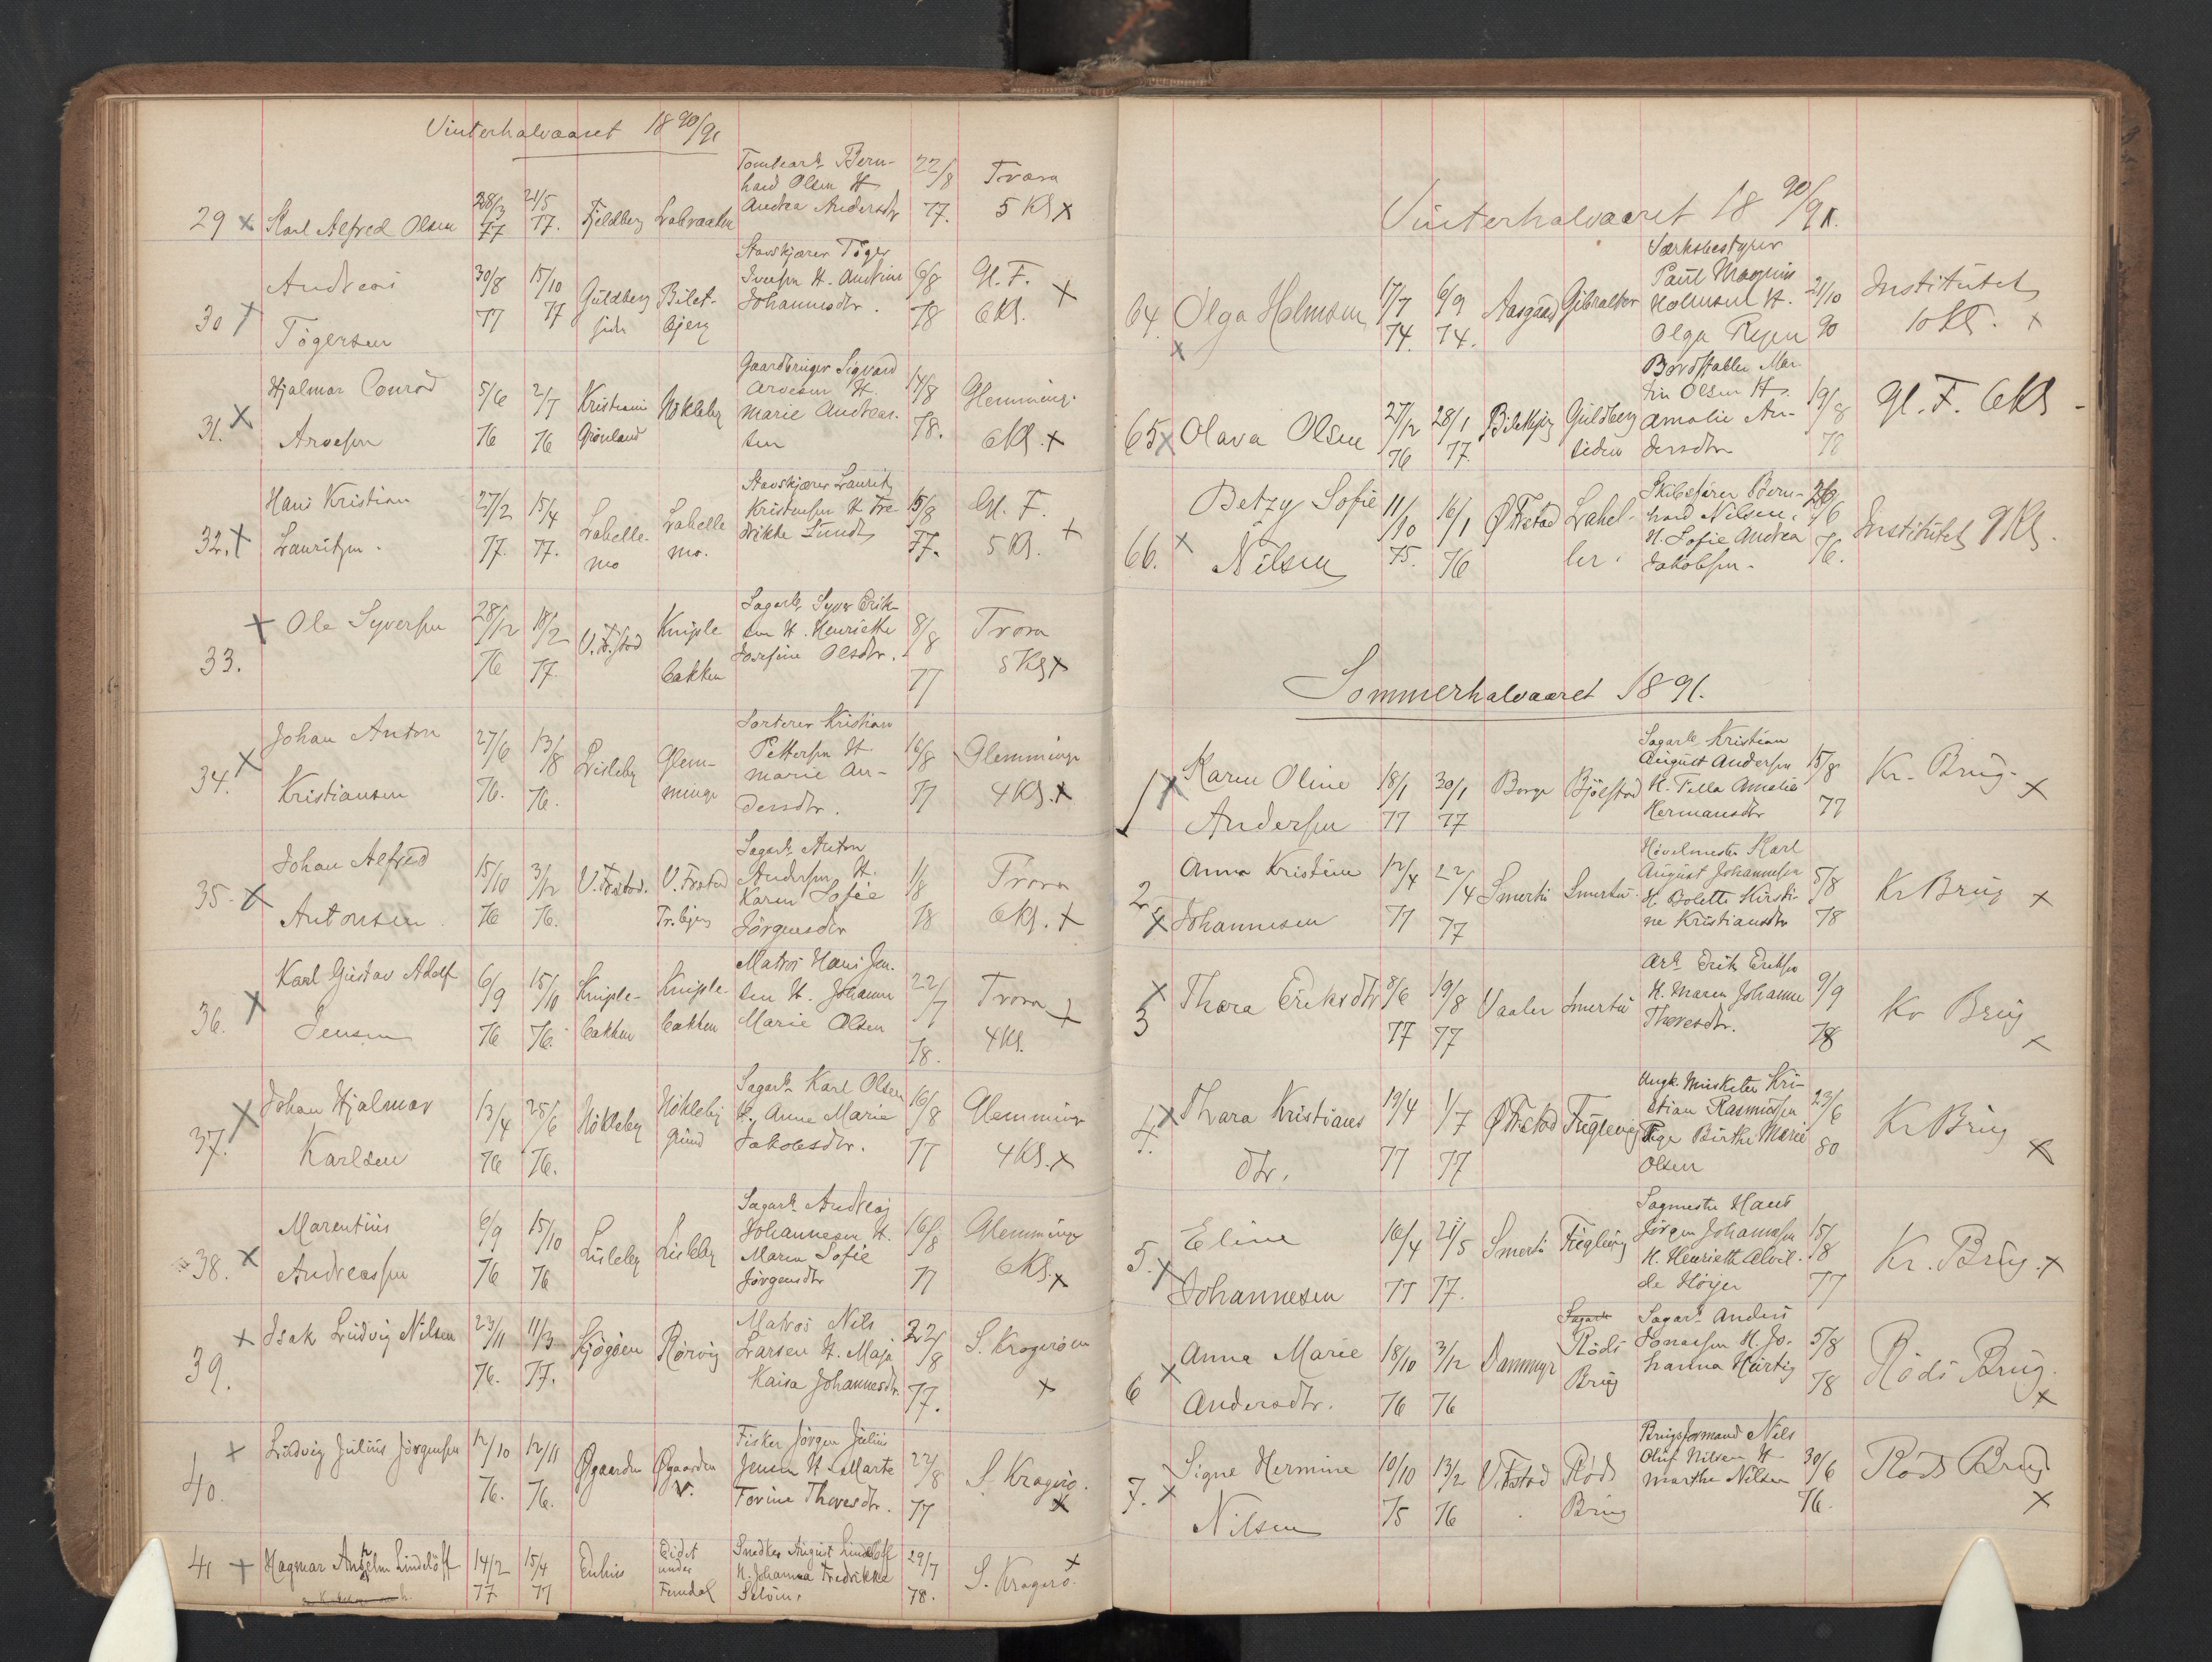 Vinterhalvaaret 18 90/91
29 x Karl Alfred Olsen 28/3 77 21/5 77. Fjeldberg Tomtearb. Bernhard Olsen H. Andrea Andersdtr 22/8 77. Trara 5 Kl x
30 x Andreas Tögersen 30/8 77 15/10 77 Guldbergsida Biletbjerg Stavskjærer Töger Iversen H. Johannesdtr. 6/8 78 Gl. F. 6 Kl. x
31. x Hjalmar Conrad Arvesen 5/6 76 2/7 76 Kristiania Grönland Nökleby Gaardbruger Sigvard Arvesen H. Marie Andreassen 14/8 78. Glemminge 6 Kl. x
32. x Hans Kristian Lauritzen. 27/2 77. 15/4 77. Labellemo Labellemo. Stavskjærer Lauritz Kristensen H. Fredrikke Lund 15/8 77. Gl. F. 5 Kl. x
33. x Ole Syversen 28/12 76 18/2 77. V. F.stad Kniplebakken Sagarb. Syver Eriksen H. Henriette Josefine Olsdtr. 8/8 77 Trara 5 Kl x
34. x Johan Anton Kristiansen 27/6 76. 13/8 76. Lisleby Glemminge Sorterer Kristian Pettersen H. Marie Andersdtr. 16/8 77 Glemminge 4 Kl. x
35. x Johan Alfred Antonsen 15/10 76 3/12 76. V. Frstad. V. Frstad Tr.bjerg Sagarb. Anton Andersen H. Karen Sofie Jörgensdtr 1/8 78 Trara 6 Kl. x
36. x Karl Gustav Adolf Jensen 6/9 76 15/10 76. Kniplebakken Kniplebakken Matros Hans Jensen H. Johanne Marie Olsen 22/7 78. Trara 4 Kl. x
37. x Johan Hjalmar Karlsen 13/4 76 25/6 76. Nökleby Nökleby grund Sagarb. Karl Olsen H. Anne Marie Jakobsdtr. 16/8 77 Glemminge 4 Kl. x
38. x Marentius Andreassen 6/9 76 15/10 76 Lisleby Lisleby Sagarb. Andreas Johannesen H. Maren Sofie Jörgensdtr 16/8 77 Glemminge 6 Kl. x
39. x Isak Ludvig Nilsen 23/11 76. 11/3 77. Kjögöen Rörvig Matros Nils Larsen H. Maja Kaisa Johannesdtr. 22/8 77. S. Kragerøen x
40. x Ludvig Julius Jörgensen 12/10 76. 12/11 76. Øgaarden Øgaarden v. Fisker Jörgen Julius Jensen H. Marte Torine Thoresdtr. 22/8 77 S. Kragerø. x
41 x Hagmar Anshelm Lindelöff 14/2 77 15/4 77 Enhus Eidet under Ferndal Snedker August Lindelöff H. Johanna Fredrikke 29/7 78. S. Kragerø. x
Vinterhalvaaret 18 90/91.
64. x Olga Holmsen 17/7 74. 6/9 74. Aasgaard Gibralter Paul Magnus Holmsen H. Olga 21/10 90 Institutet 10 Kl. x
65 x Olava Olsen 27/12 76 28/1 77. Biletbjerg Guldbergsiden Bordstabler Martin Olsen H. Amalie Andersdtr 19/8 78 Gl. F. 6 Kl
66. x Betzy Sofie Nilsen 11/10 75. 16/1 76 Ø Frstad Labeller. Skibsfører Bernhard Nilsen. H. Sofie Andrea Jakobsen. 26/6 76. Institutet 9 Kl.
Sommerhalvaaret 1891.
1 x Karen Oline Andersen 18/1 77 30/1 77 Borge Bjölstad Sagarb. Kristian August Andersen H. Tilla Amalie Hermansdtr 15/8 77 Kr. Brug. x
2. x Anna Kristine Johannesen 12/4 77 22/4 77 Smertu Smertu. Hövelmester Karl August Johannesen H. Bolette Kirstine Kristiansdtr 5/8 78 Kr Brug x
3 x Thora Eriksdtr 8/6 77 19/8 77 Vaaler Smertu Arb. Erik Eriksen H. Maren Johanne Thoresdtr. 9/9 78 Kr Brug x
4. x Thara Kristiansdtr. 19/4 77 1/7 77 Ø Frstad Fuglevig Ungk. Musketer Kristian Rasmussen Pige Birthe Marie Olsen 23/6 80 Kr Brug x
5. x Eline Johannesen 16/4 77 21/5 77. Smertu Fuglevig Sagmester Hans Jörgen Johannesen H. Henriette Alvilde Höyer 15/8 77 Kr. Brug. x
6 x Anna Marie Andersdtr. 18/10 76 3/12 76 Dammyr Sagarb Röds Brug Sagarb. Anders Jonassen H. Johanna Hurtig 5/8 78 Röds Brug. x
7. x Signe Hermine Nilsen 10/10 75 13/2 76 V. Frstad Röds Brug Brugsformand Nils Oluf Nilsen H Marthe Nilsen 30/6 76. Röds Brug x